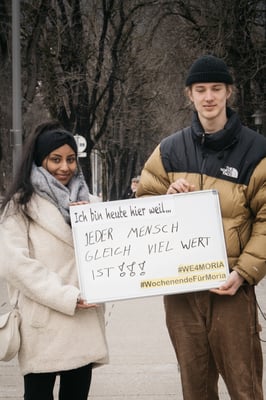 Ich bin heute hier weil...
JEDER MENSCH
GLEICH VIEL WERT
IST !!!
#WE4MORIA
#WochenendeFürMoria
THE
NORTH
FACE